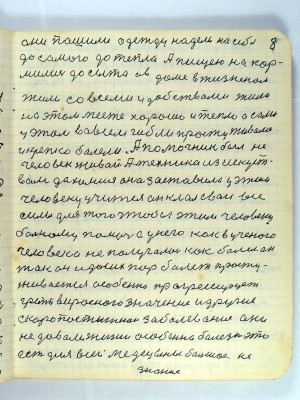 они пошили одежду надели на себя 8
до самого до тепла А пищею на кор-
мили до света и в доме в жизненом
жили со всеми удобствами жили
на этом месте хорошо и тепло а сами
у этом во всем гибли простуживали
и крепко болели. А помочник был не
человек живай А техника из искуст-
вом да химия она заставила у этом
человеку учится он клал свои все
силы для того чтобы этим человеку
болному помоч а у него как в ученого
человека не получалось как болел он
так он и до сих пор болеет просту-
живается особенно прогрессирует
грипп виросного значение и другие
скоропостижное заболевание они
не довали жизни особенно болезн это
ест для всей медецыны болшое не
знание